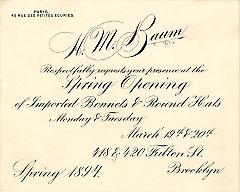 PARIS,
48 RUE DES PETITES ECURIES.
H. M. Baum
Respectfully requests your presence at the
Spring Opening
of Imported Bonnets & Round Hats
Monday & Tuesday
March 19th & 20th
418 & 420 Fulton St.
Spring 1894. Brooklyn.